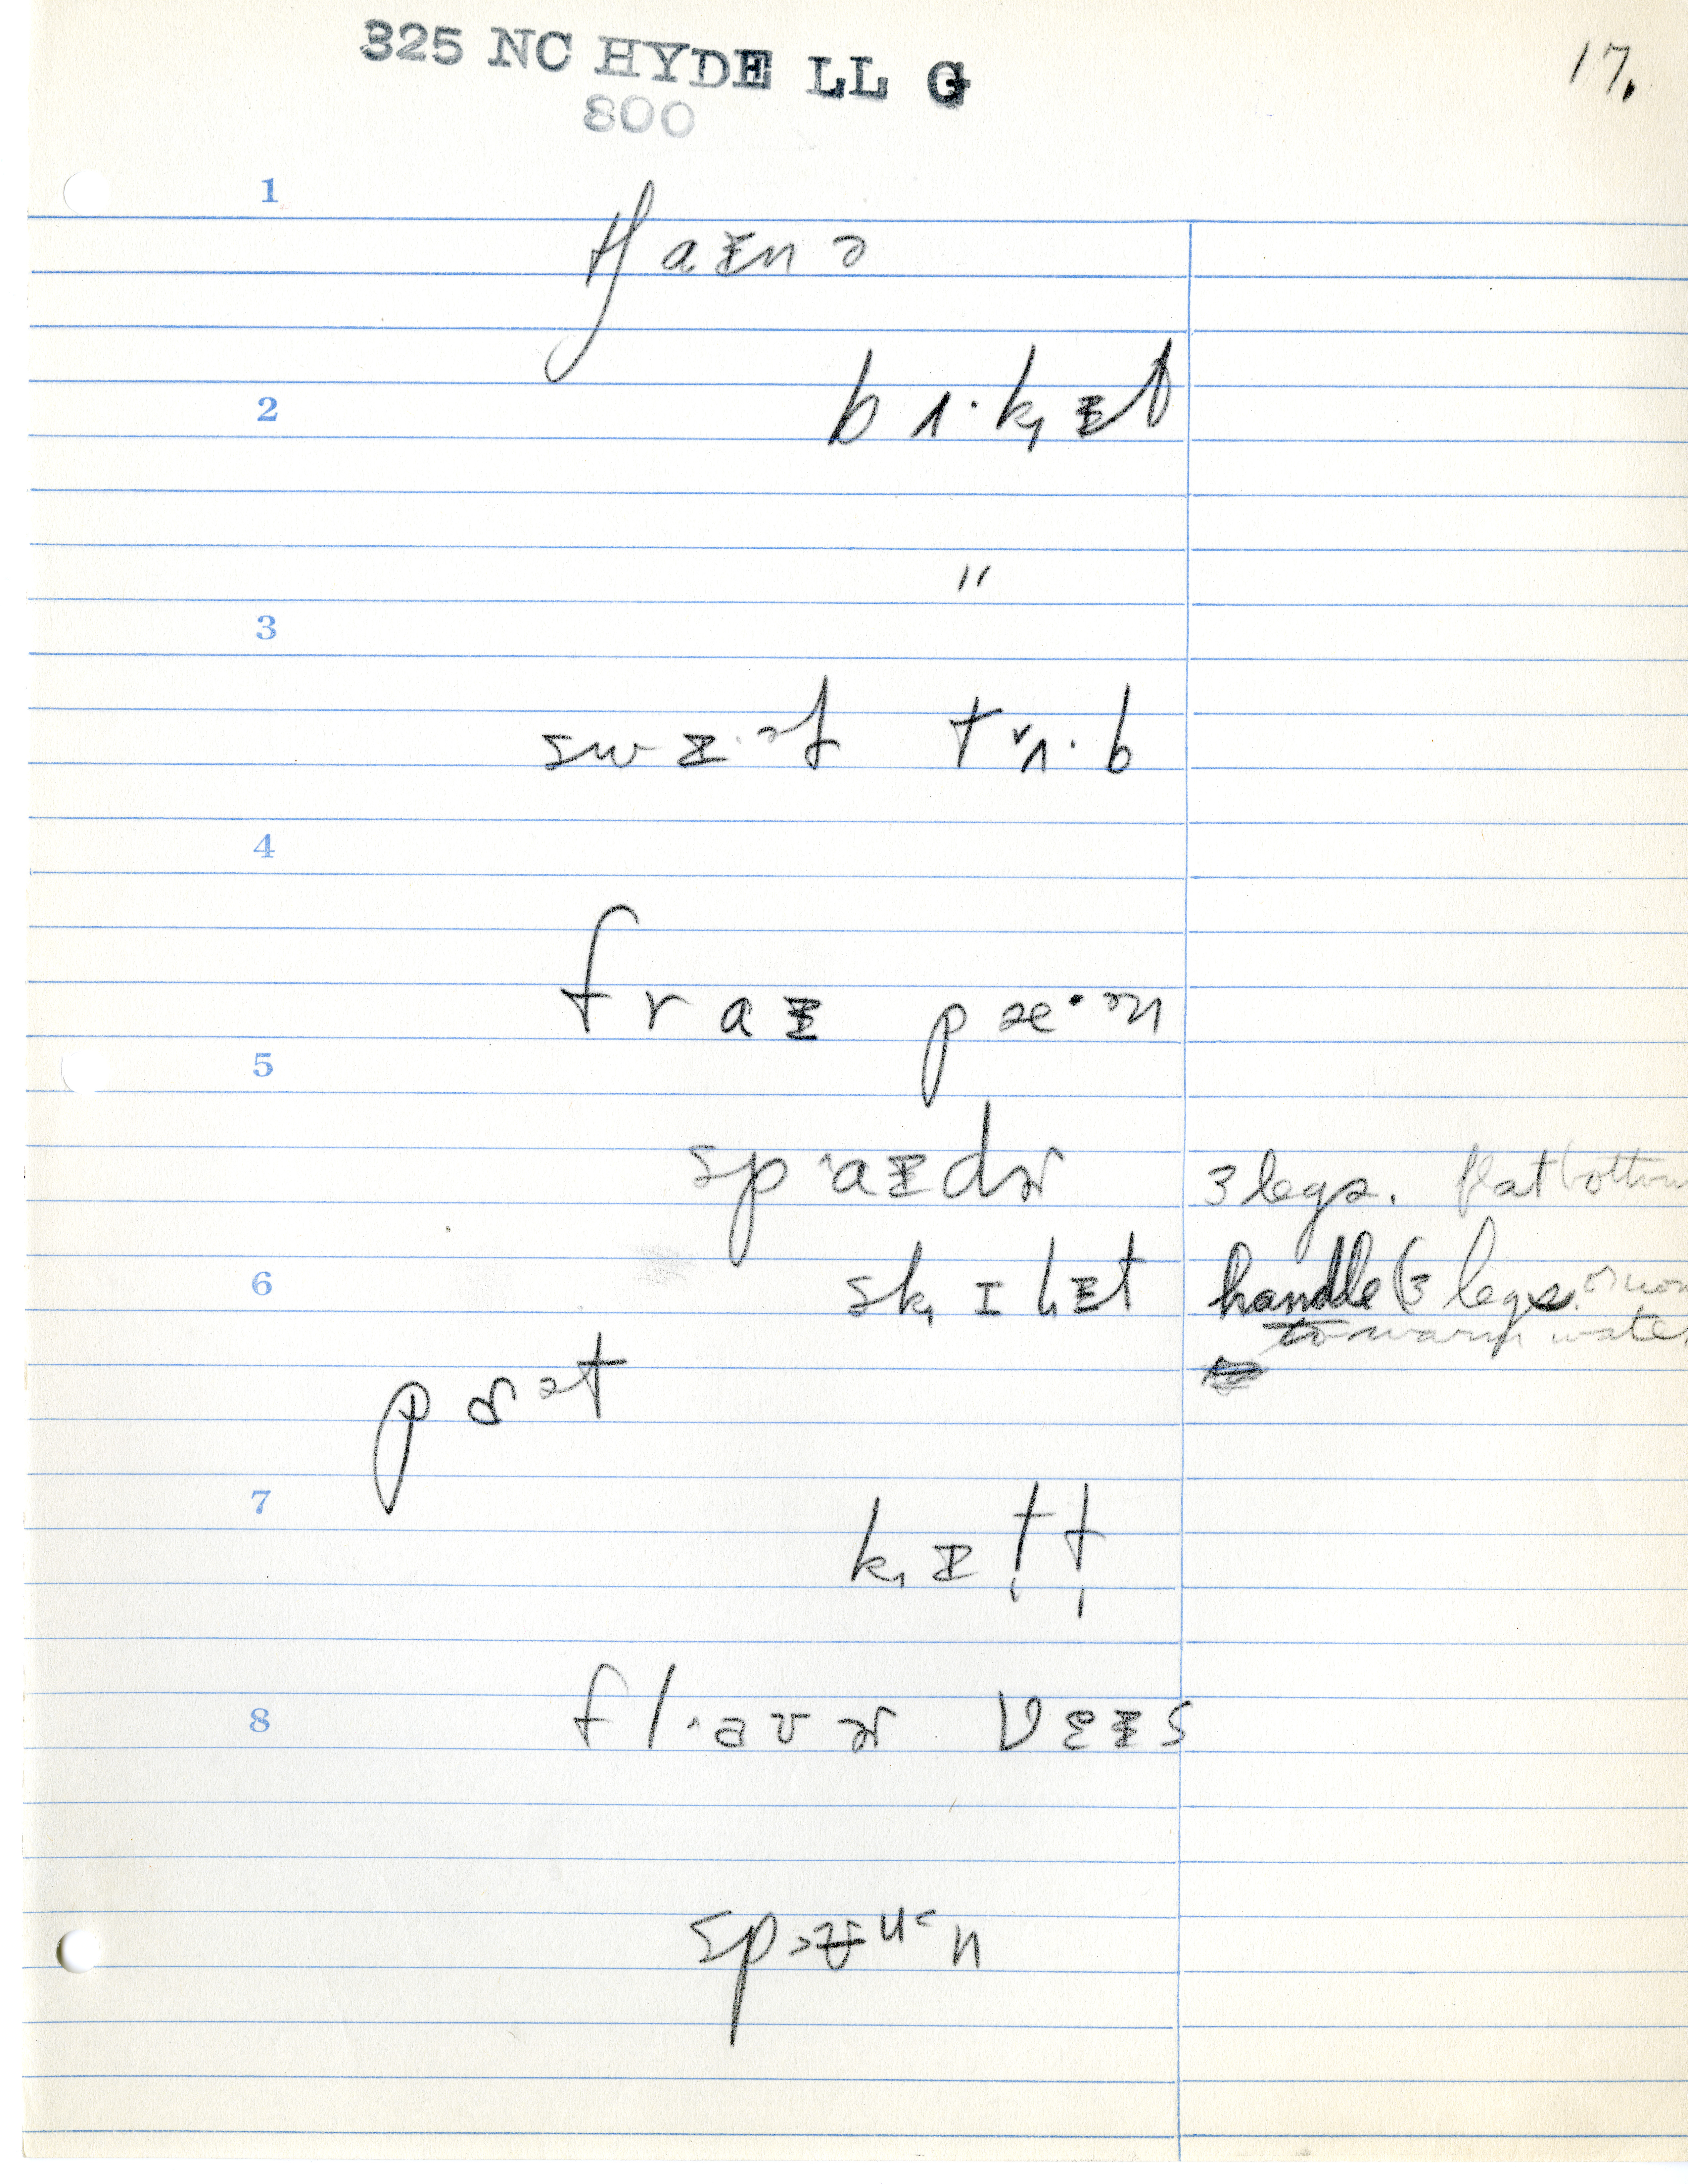 325 NC HYDE LL G
800
17.
1
tʃaɪnə
2
bʌ·k̟ᵻt
"
3
swᵻ·ᵊt tᵛʌ·b
4
fraᵻ pæ·ᵊn
5
sp^aᵻdɚ 3 legs. flat bottom
6
sk̟ɪlᵻt handle (3 legs. or non
to warm water
pɑᵊt
7
k̟ɪt̬t̩
8
fl^avɚ vɛᵻs
spᵊʉᵘ˂n